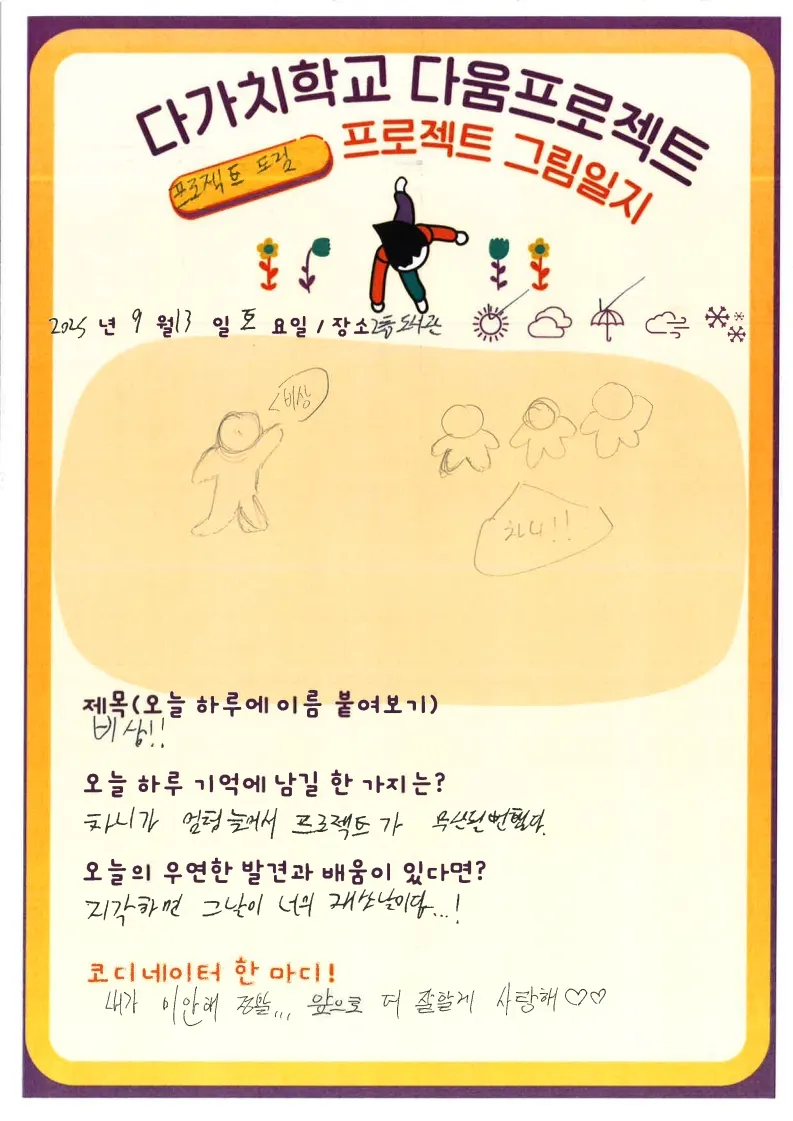 다가치학교 다움프로젝트
프로젝트 그림일지
프로젝트 드림
2025 년 9 월 13 일 토 요일 / 장소 2층 도서관
비상
차니!!
제목(오늘 하루에 이름 붙여보기)
비상!!
오늘 하루 기억에 남길 한 가지는?
차니가 엄청 늦어서 프로젝트가 무산될 뻔했다.
오늘의 우연한 발견과 배움이 있다면?
지각하면 그날이 너의 제삿날이다...!
코디네이터 한 마디!
내가 미안해 정말... 앞으로 더 잘할게 사랑해♡♡